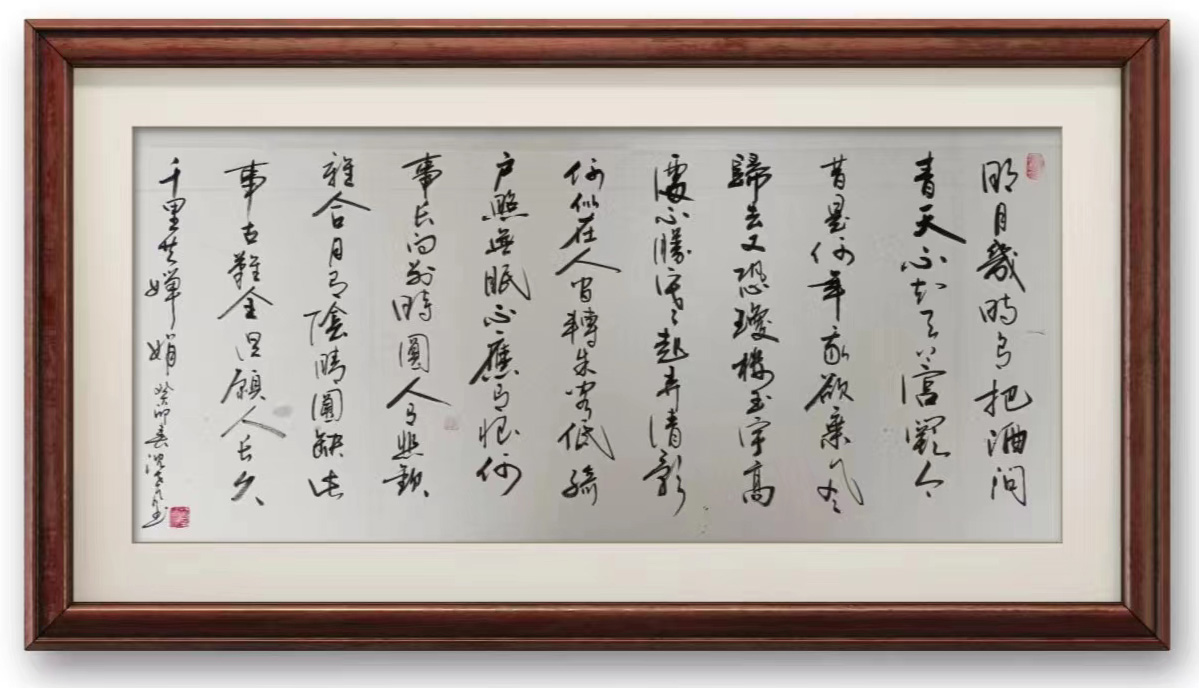 明月幾時有把酒問
青天不知天上宮闕今
昔是何年我欲乘風
歸去又恐瓊樓玉宇高
處不勝寒起弄清影
何似在人間轉朱閣低綺
户照無眠不應有恨何
事長向別時圓人有悲歡
離合月有陰晴圓缺此
事古難全但願人長久
千里共嬋娟 癸卯春